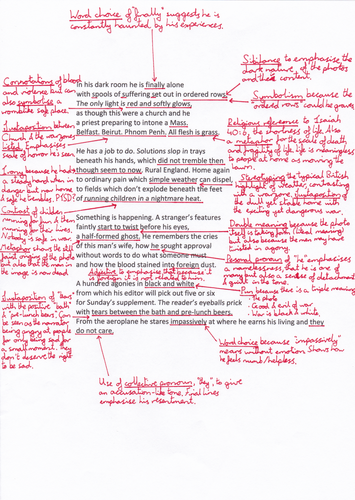 Word choice of "finally" suggests he is
constantly haunted by his experiences.
Sibilance to emphasise the
dark nature of the photos
and their content.
Connotations of blood
and violence but can
also symbolise a
womblike safe place.
In his dark room he is finally alone
with spools of suffering set out in ordered rows.
The only light is red and softly glows,
as though this were a church and he
a priest preparing to intone a Mass.
Belfast. Beirut. Phnom Penh. All flesh is grass.
Symbolism because the
"ordered rows" could be graves
Juxtaposition between
Church & the warzones
listed. Emphasises
scale of horror he's seen
Religious reference to Isaiah
40:6, the shortness of life. Also
a metaphor for the scale of death
and fragility of life is meaningless
to people at home as mowing the
lawn.
He has a job to do. Solutions slop in trays
beneath his hands, which did not tremble then
though seem to now. Rural England. Home again
to ordinary pain which simple weather can dispel,
to fields which don't explode beneath the feet
of running children in a nightmare heat.
Irony because he had
a steady hand when in
danger but now home
& safe he trembles. PTSD?
Stereotyping the typical British
habit of weather, contrasting
with a warzone, juxtaposition of
the dull yet stable home with
the exciting yet dangerous war.
Contrast of children
running for fun & them
running for their lives.
Nobody is safe in war.
Something is happening. A stranger's features
faintly start to twist before his eyes,
a half-formed ghost. He remembers the cries
of this man's wife, how he sought approval
without words to do what someone must
and how the blood stained into foreign dust.
Double meaning because the photo
itself is taking form (literal meaning)
but also because the man may have
twisted in agony.
Metaphor shows the still
paused image of the photo
but also that the man in
the image is now dead
Personal pronoun of "he" emphasises
a namelessness, that he is one of
many but also a sense of detachment
& guilt in the tone.
Adjective to emphasise that because it
is foreign it is not related to him
A hundred agonies in black and white
from which his editor will pick out five or six
for Sunday's supplement. The reader's eyeballs prick
with tears between the bath and pre-lunch beers.
From the aeroplane he stares impassively at where he earns his living and they
do not care.
Pun because there is a triple meaning
- The photo
- Good & evil of war
- War is black & white,
Juxtaposition of "tears"
with the positive "bath
& "pre-lunch beers". Can
be seen as the narrator
being angry at people
for only being sad for
a small moment. They
don't deserve the right
to be sad.
Word choice because "impassively"
means without emotion. Shows how
he feels numb/helpless.
Use of collective pronoun, "they", to give
an accusation-like tone. Final lines
emphasise his resentment.